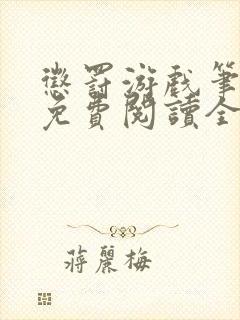 懲罰游戲筆
免費閱讀全
蔣麗梅